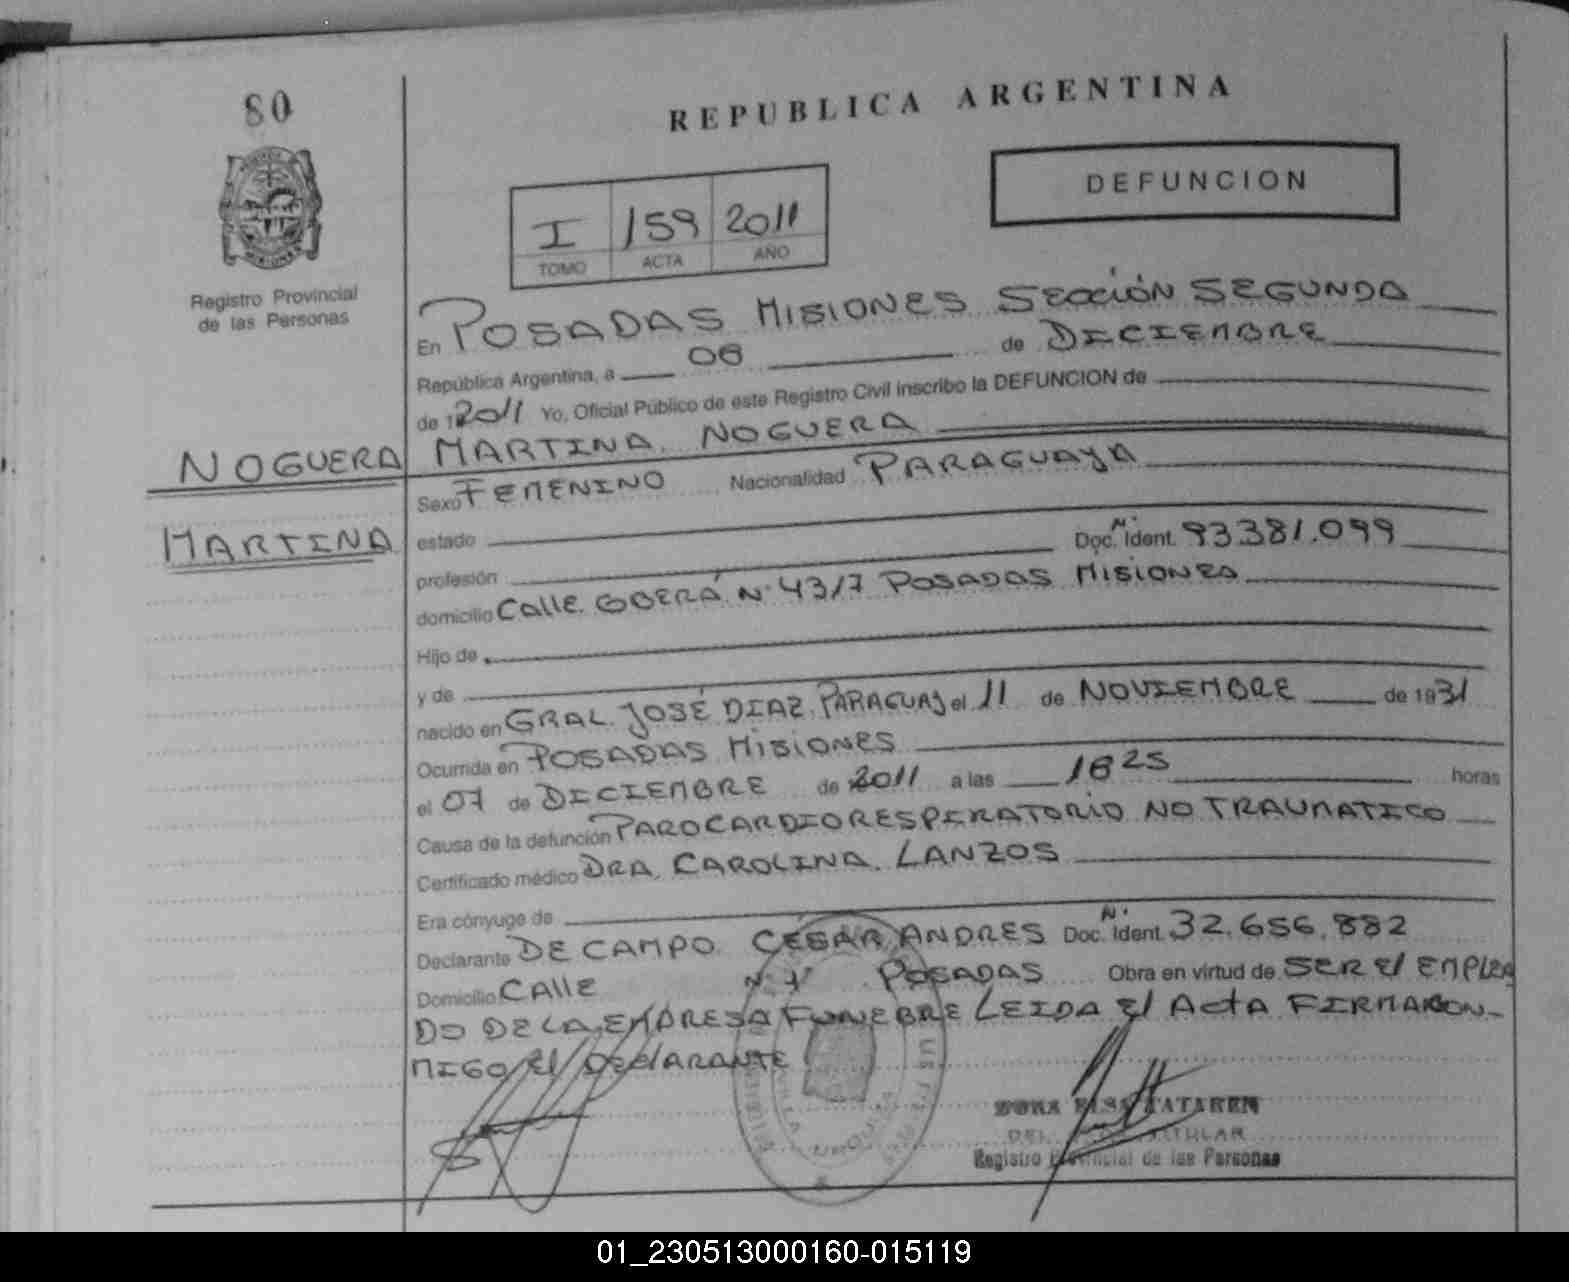 80
REPUBLICA ARGENTINA
DEFUNCION
I 159 2011
TOMO ACTA AÑO
Registro Provincial
de las Personas
En POSADAS MISIONES SECCIÓN SEGUNDA
República Argentina, a 08 de DICIEMBRE
de 2011 Yo, Oficial Público de este Registro Civil inscribo la DEFUNCION de
NOGUERA MARTINA NOGUERA
Sexo FEMENINO Nacionalidad PARAGUAYA
MARTINA estado
profesión Doc. N° Ident. 93.381.099
domicilio Calle OBERÁ N° 4317 POSADAS MISIONES
Hijo de
y de
nacido en GRAL. JOSÉ DIAZ, PARAGUAY el 11 de NOVIEMBRE de 1931
Ocurrida en POSADAS MISIONES
el 07 de DICIEMBRE de 2011 a las 18 25 horas
Causa de la defunción PAROCARDIORESPIRATORIO NO TRAUMATICO
Certificado médico DRA. CAROLINA LANZOS
Era cónyuge de
Declarante DE CAMPO CÉSAR ANDRES Doc. N° Ident. 32.656.882
Domicilio CAlle POSADAS Obra en virtud de SER El EMPLEA
DO DE LA EMPRESA FUNEBRE LEIDA El ACTA FIRMA CON-
MIGO El DEClARANTE
Registro Provincial de las Personas
01_230513000160-015119